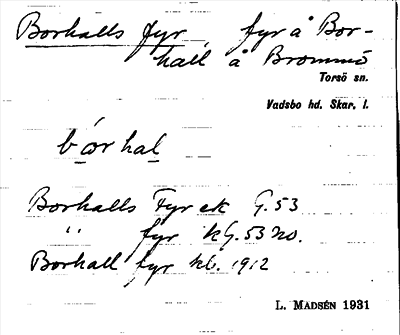 Borhalls fyr fyr å Bor-
hall å Brommö
Torsö sn.
Vadsbo hd. Skar. l.
bórhal
Borhalls Fyr ek G. 53
" fyr kG. 53 no.
Borhall fyr kb. 1912
L. MADSÉN 1931